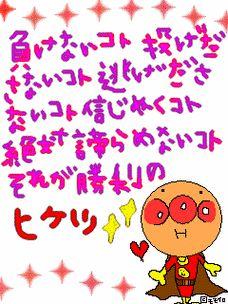 負けないコト 投げだ
さないコト 逃げださ
ないコト 信じぬくコト
絶対 諦らめないコト
それが勝利の
ヒケツ